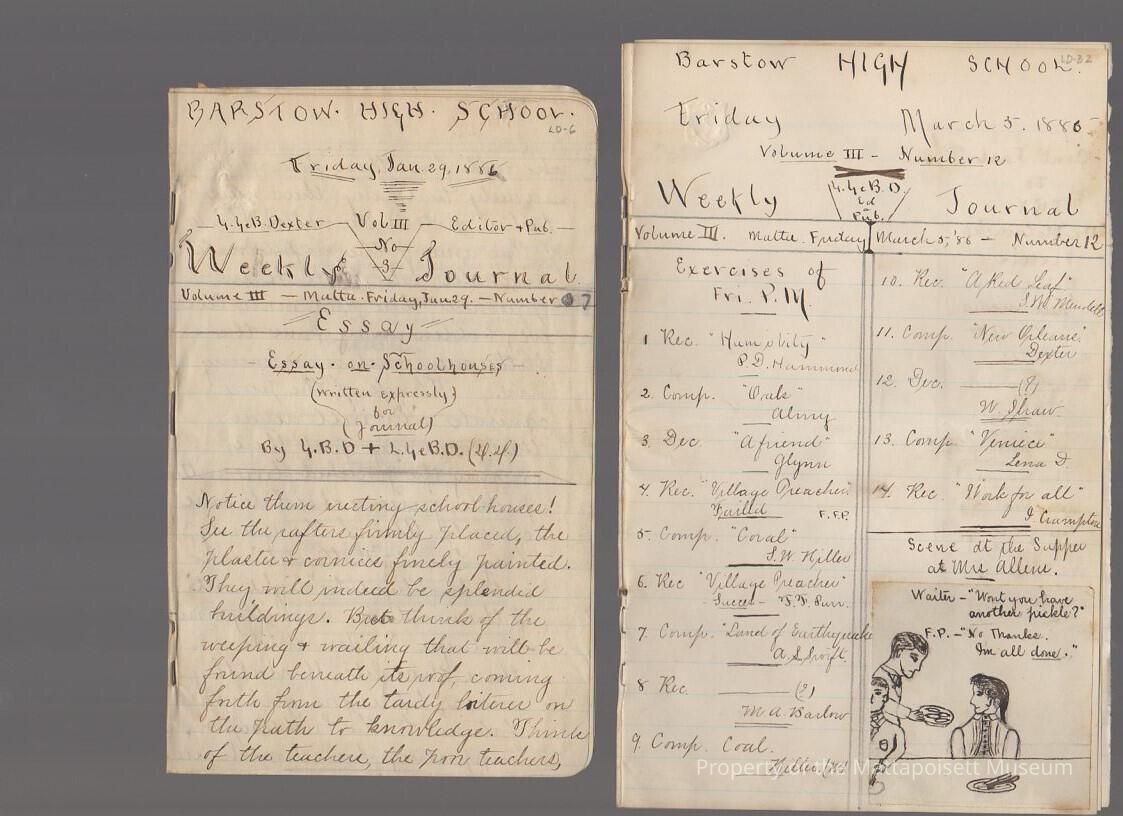 BARSTOW. HIGH. SCHOOL.
LD-6
Friday, Jan. 29, 1886
G. Ge B. Dexter — Vol III — Editor + Pub. —
No
3
Weekly Journal
Volume III — Matta. Friday, Jan 29. — Number 7
Essay
Essay - on - Schoolhouses
(Written expressly
for
Journal)
By G.B.D + L.GeB.D.
Notice them erecting school houses!
See the rafters firmly placed, the
plaster & cornices finely painted.
They will indeed be splendid
buildings. But think of the
weeping & wailing that will be
found beneath its roof, coming
forth from the tardy loiterer on
the path to knowledge. Think
of the teachers, the poor teachers,
Barstow HIGH SCHOOL.
LD-32
Friday March 5. 1886
Volume III - Number 12
Weekly Journal
G. Ge B. D.
Ed
&
Pub.
Volume III. Matta. Friday March 5, '86 — Number 12
Exercises of
Fri. P.M.
1 Rec. "Humility"
P. D. Hammond
2. Comp. "Oak"
Almy
3. Dec. "A friend"
Glynn
4. Rec. "Village Preacher"
Failed F.F.P.
5. Comp. "Coral"
S. W. Hiller
6. Rec "Village Preacher"
- Succes - F. F. Purr.
7. Comp. "Land of Earthquake
A. S. Swift.
8 Rec. ——— (?)
M. A. Barlow
9. Comp. Coal.
Hiller
10. Rec. "A Red Leaf"
S. W. Mendell
11. Comp. "New Orleans"
Dexter
12. Dec. ——— (?)
W. Shaw
13. Comp. "Veniece"
Lena D.
14. Rec. "Work for all"
I. Crampton
Scene at the Supper
at Mrs Allens.
Waiter — "Wont you have
another pickle?"
F.P. — "No Thanks.
I'm all done."
Property of the Mattapoisett Museum